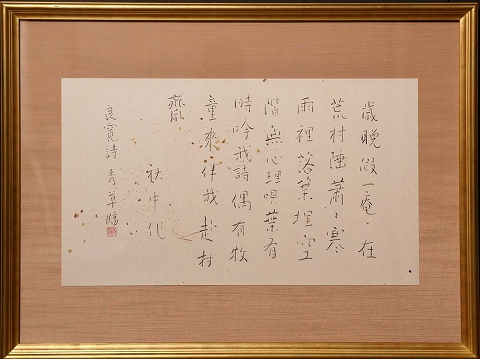 歳晩假一庵々在
荒村陲蕭々寒
雨裡落葉埋空
階無心理唄葉有
時吟我詩偶有牧
童來伴我赴村
齋
秋中作
良寛詩 秀草臨